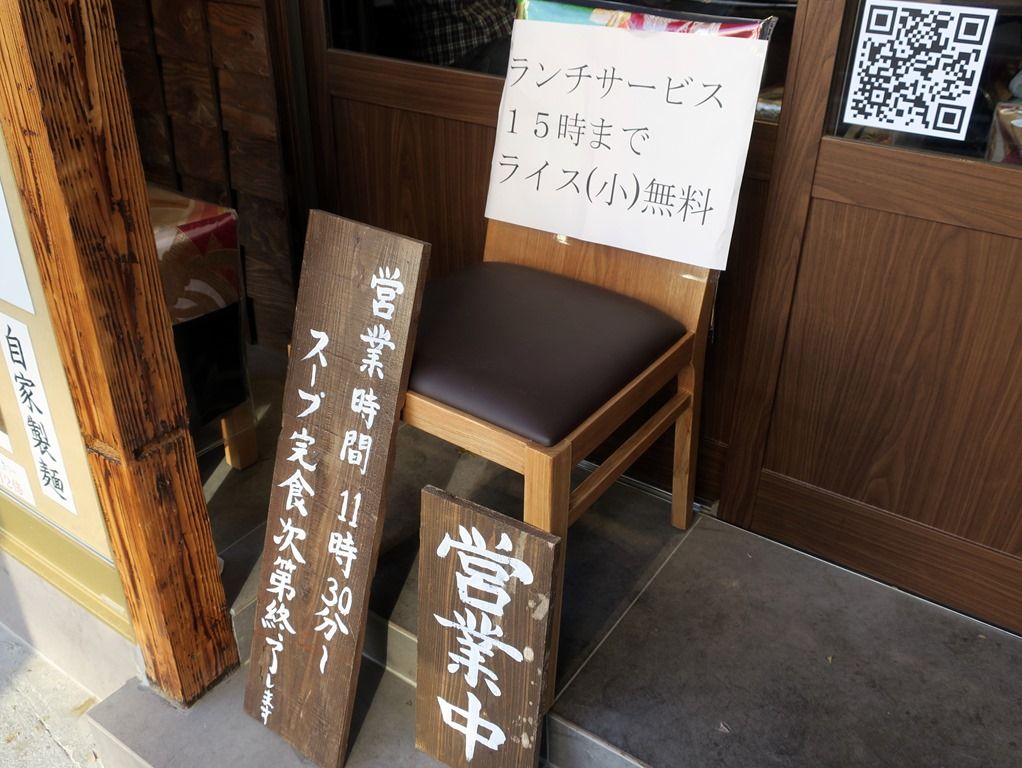 ランチサービス
15時まで
ライス(小)無料
営業時間 11時30分〜
スープ完食次第終了します
営業中
自家製麺